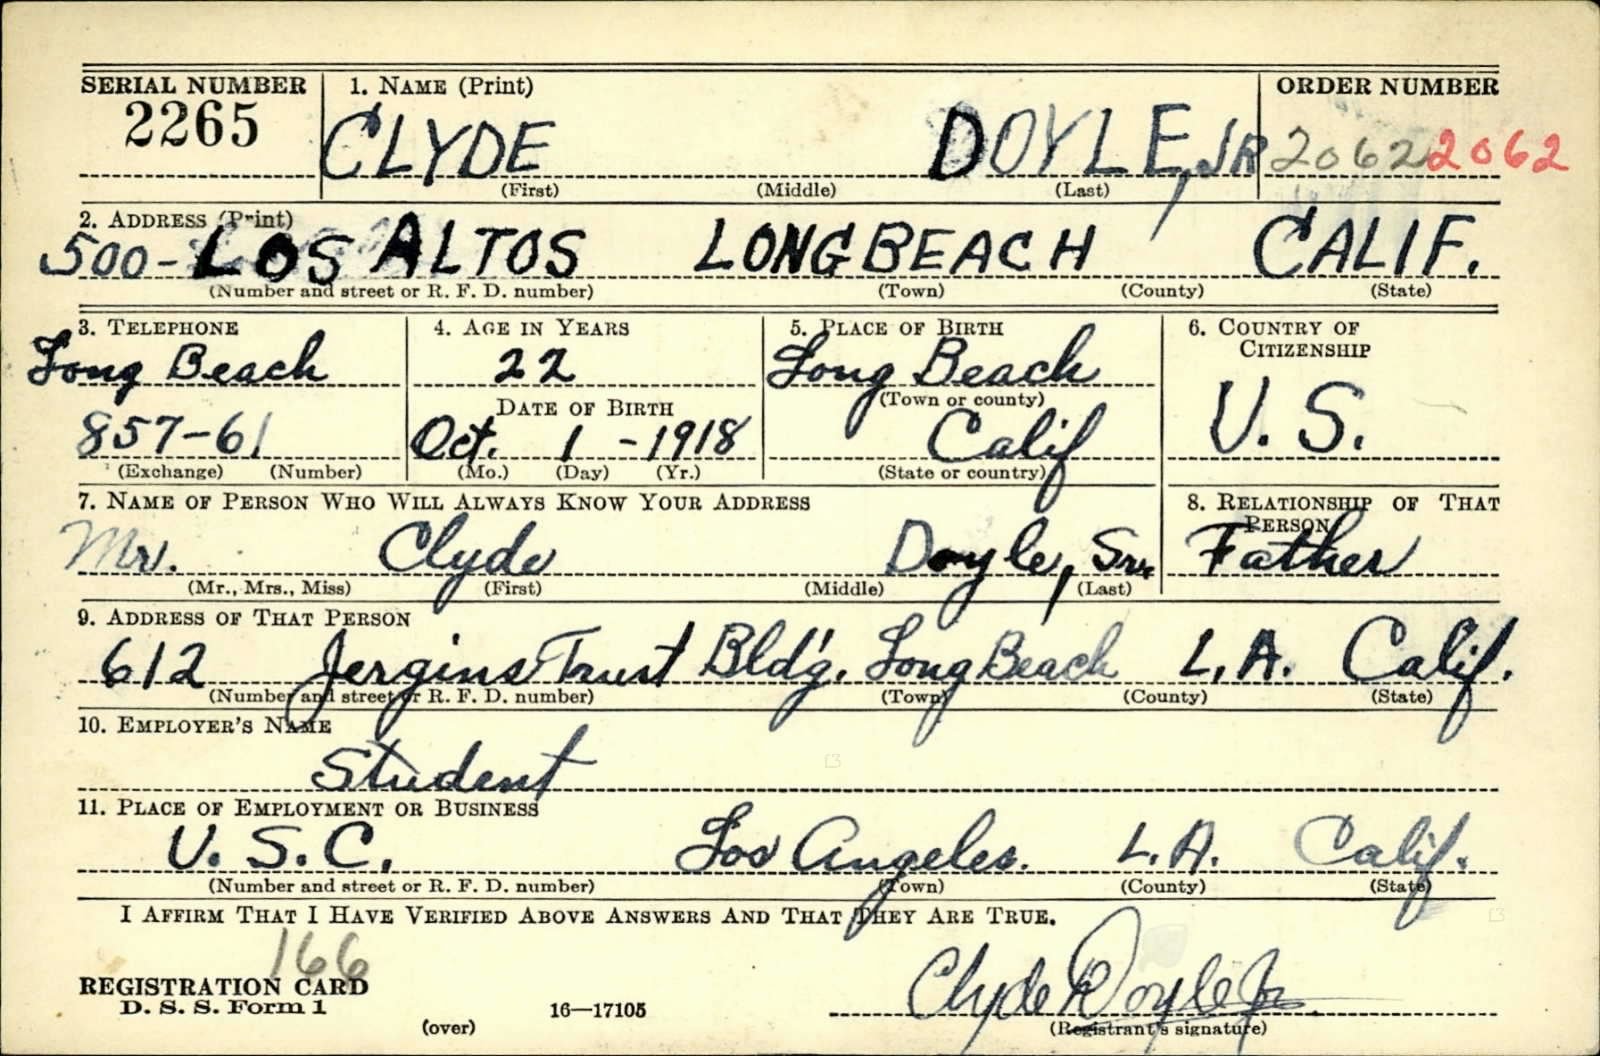 SERIAL NUMBER 1. NAME (Print) ORDER NUMBER
2265 CLYDE DOYLE, JR 2062 2062
(First) (Middle) (Last)
2. ADDRESS (Print)
500 - LOS ALTOS LONG BEACH CALIF.
(Number and street or R. F. D. number) (Town) (County) (State)
3. TELEPHONE 4. AGE IN YEARS 5. PLACE OF BIRTH 6. COUNTRY OF CITIZENSHIP
Long Beach 22 Long Beach U. S.
DATE OF BIRTH (Town or county)
857-61 Oct. 1 - 1918 Calif
(Exchange) (Number) (Mo.) (Day) (Yr.) (State or country)
7. NAME OF PERSON WHO WILL ALWAYS KNOW YOUR ADDRESS 8. RELATIONSHIP OF THAT PERSON
Mr. Clyde Doyle, Sr. Father
(Mr., Mrs., Miss) (First) (Middle) (Last)
9. ADDRESS OF THAT PERSON
612 Jergins Trust Bld'g. Long Beach L.A. Calif.
(Number and street or R. F. D. number) (Town) (County) (State)
10. EMPLOYER'S NAME
Student
11. PLACE OF EMPLOYMENT OR BUSINESS
U. S. C. Los Angeles. L.A. Calif.
(Number and street or R. F. D. number) (Town) (County) (State)
I AFFIRM THAT I HAVE VERIFIED ABOVE ANSWERS AND THAT THEY ARE TRUE.
166
REGISTRATION CARD Clyde Doyle Jr.
D. S. S. Form 1 16—17105
(over) (Registrant's signature)